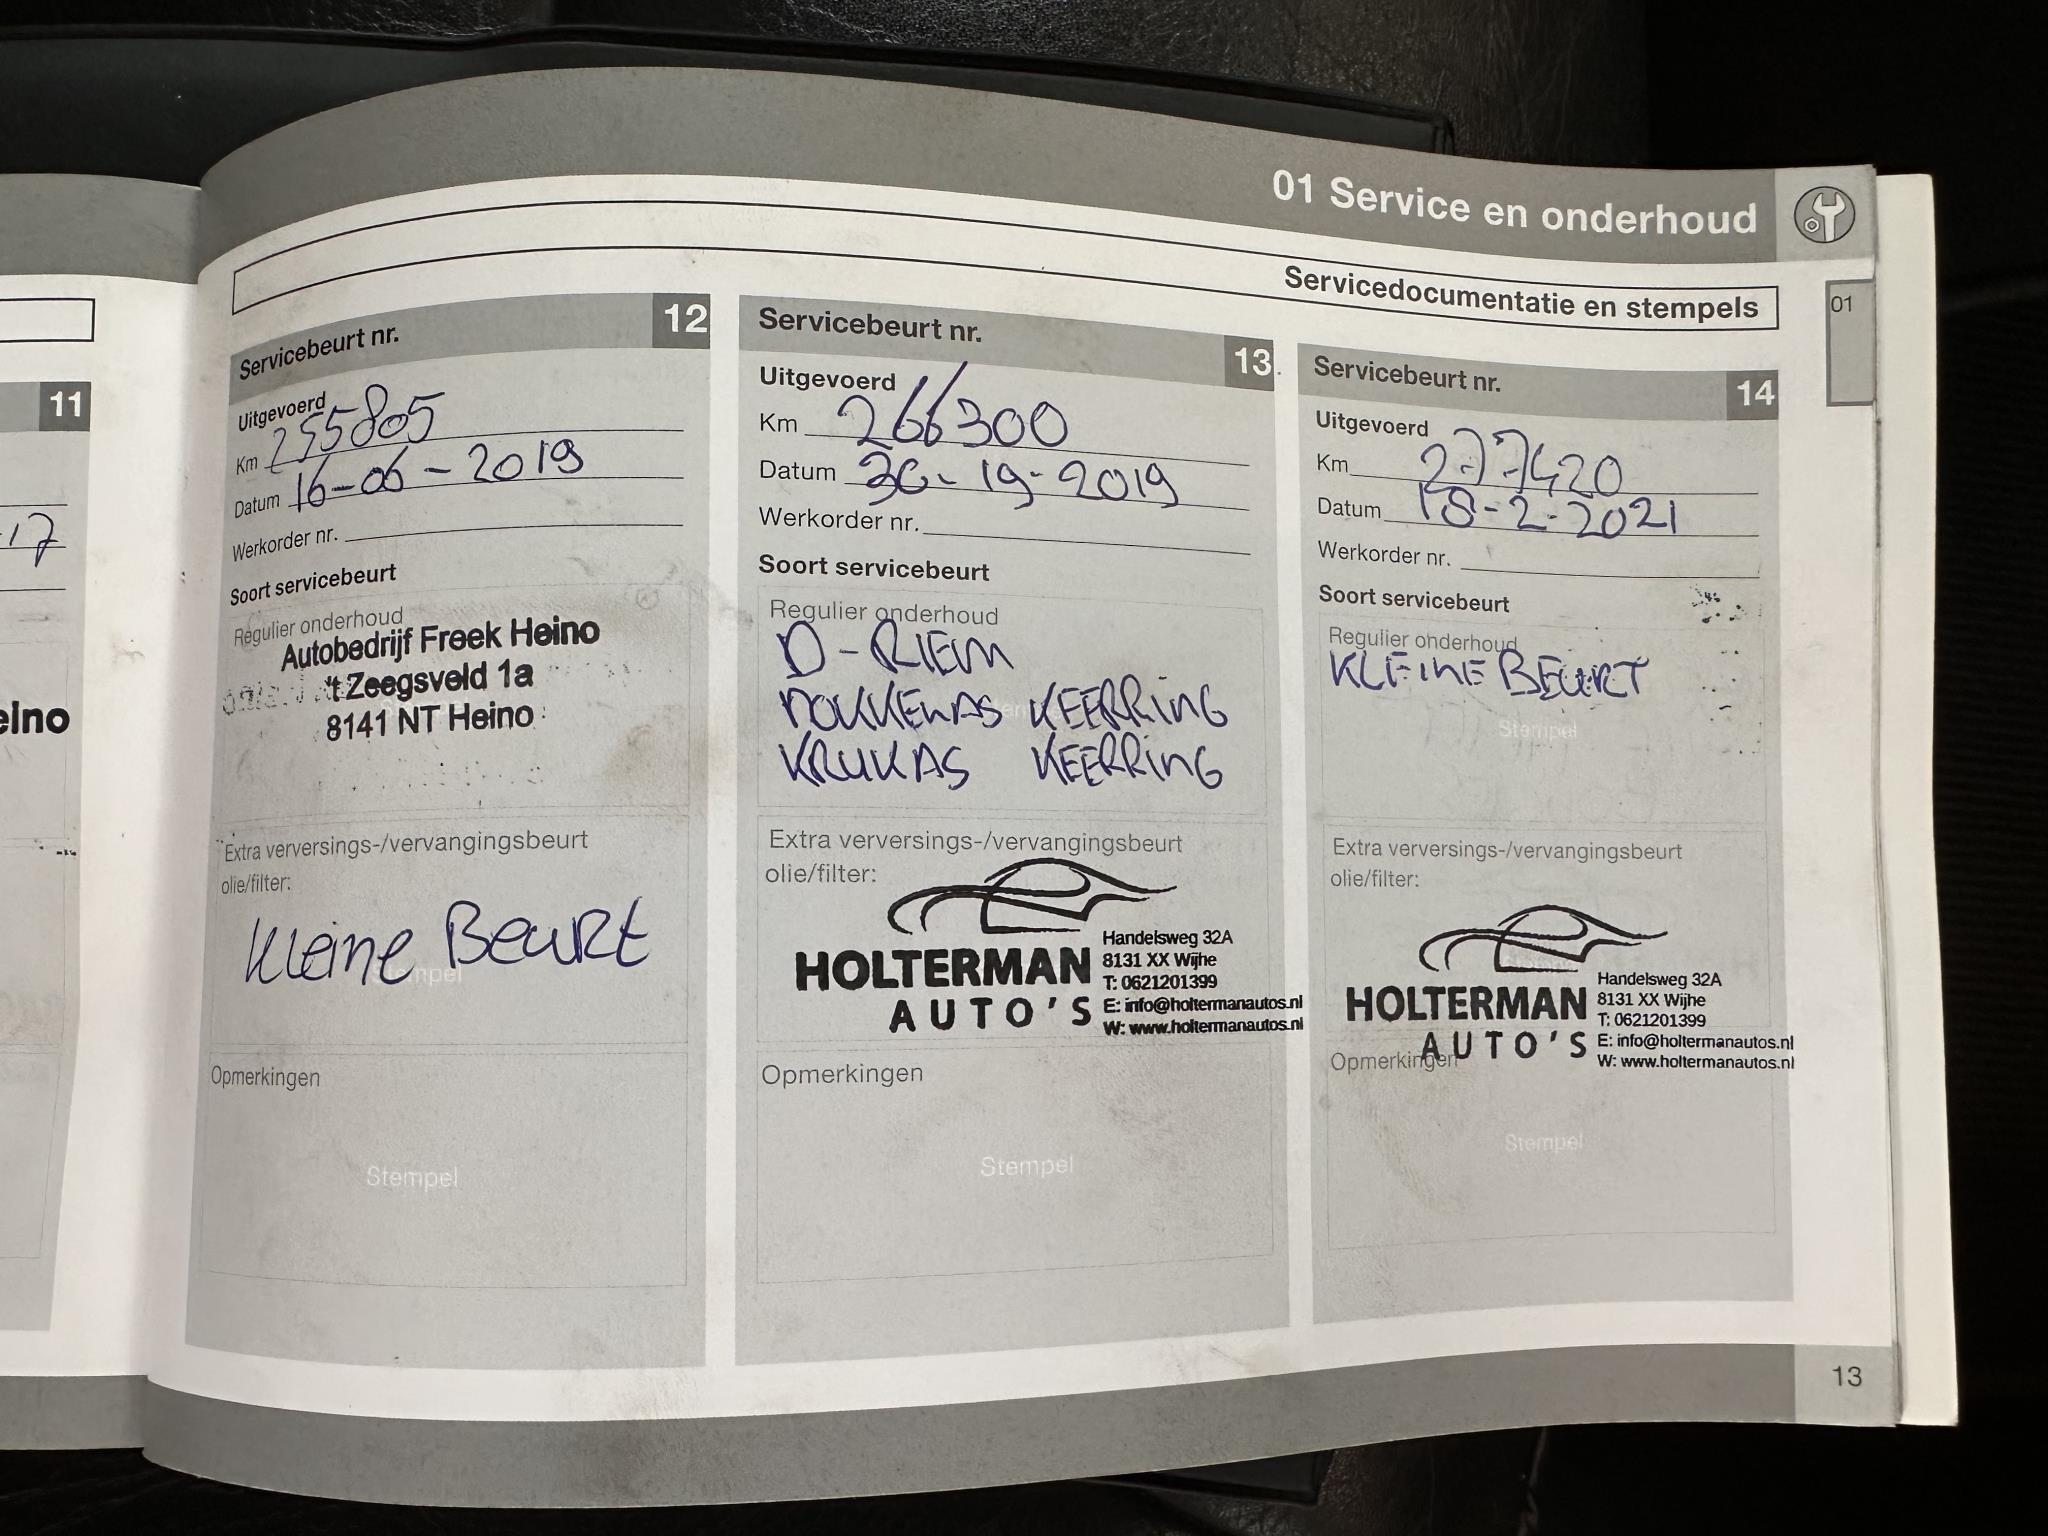 01 Service en onderhoud
Servicedocumentatie en stempels
01
11
-17
eino
Servicebeurt nr. 12
Uitgevoerd
Km 255805
Datum 16-06-2019
Werkorder nr.
Soort servicebeurt
Regulier onderhoud
Autobedrijf Freek Heino
't Zeegsveld 1a
8141 NT Heino
Extra verversings-/vervangingsbeurt
olie/filter:
Kleine Beurt
Stempel
Opmerkingen
Stempel
Servicebeurt nr. 13
Uitgevoerd
Km 266300
Datum 30-19-2019
Werkorder nr.
Soort servicebeurt
Regulier onderhoud
D-RIEM
NOKKENAS KEERRING
KRUKAS KEERRING
Extra verversings-/vervangingsbeurt
olie/filter:
HOLTERMAN
AUTO'S
Handelsweg 32A
8131 XX Wijhe
T: 0621201399
E: info@holtermanautos.nl
W: www.holtermanautos.nl
Opmerkingen
Stempel
Servicebeurt nr. 14
Uitgevoerd
Km 277420
Datum 18-2-2021
Werkorder nr.
Soort servicebeurt
Regulier onderhoud
KLEINE BEURT
Stempel
Extra verversings-/vervangingsbeurt
olie/filter:
HOLTERMAN
AUTO'S
Handelsweg 32A
8131 XX Wijhe
T: 0621201399
E: info@holtermanautos.nl
W: www.holtermanautos.nl
Opmerkingen
Stempel
13